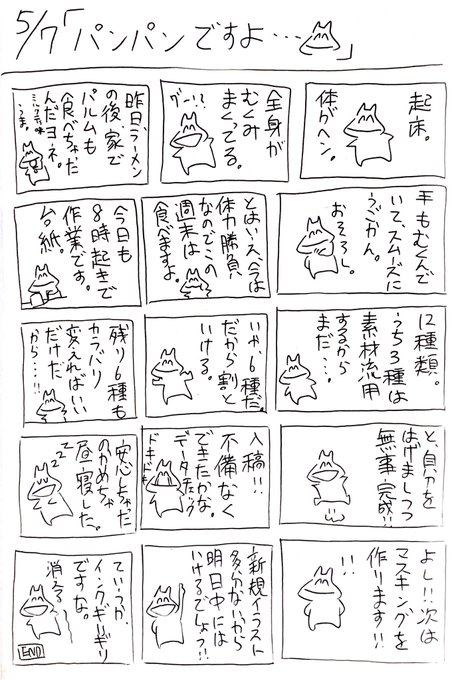 5/7「パンパンですよ…」
起床。
体がヘン。
全身が
むくみ
まくってる。
グー!!?
昨日、ラーメン
の後、家で
パルムも
食べちゃだ
んだヨネ。
手もむくんで
いて、スムーズに
うごかん。
おそろし。
とはいえ、今は
体力勝負
なのでこの
週末は
食べますよ。
今日も
8時起きで
作業です。
台紙。
12種類。
うち3種は
素材流用
するから
まだ…。
いや、6種だ。
だから割と
いける。
残り6種も
カラバリ
変えればいい
だけだ
から…!!
と、自分を
はげましつつ
無事、完成!!
入稿!!
不備なく
できたかな。
データチェック
ドキドキ
安心しちゃった
のかめちゃ
昼寝した。
zzz
よし!!次は
マスキングを
作ります!!
!!
新規イラスト
多分ないから
明日中には
いけるでしょう?!!
ていうか、
インクギリギリ
ですな。
消える。
END